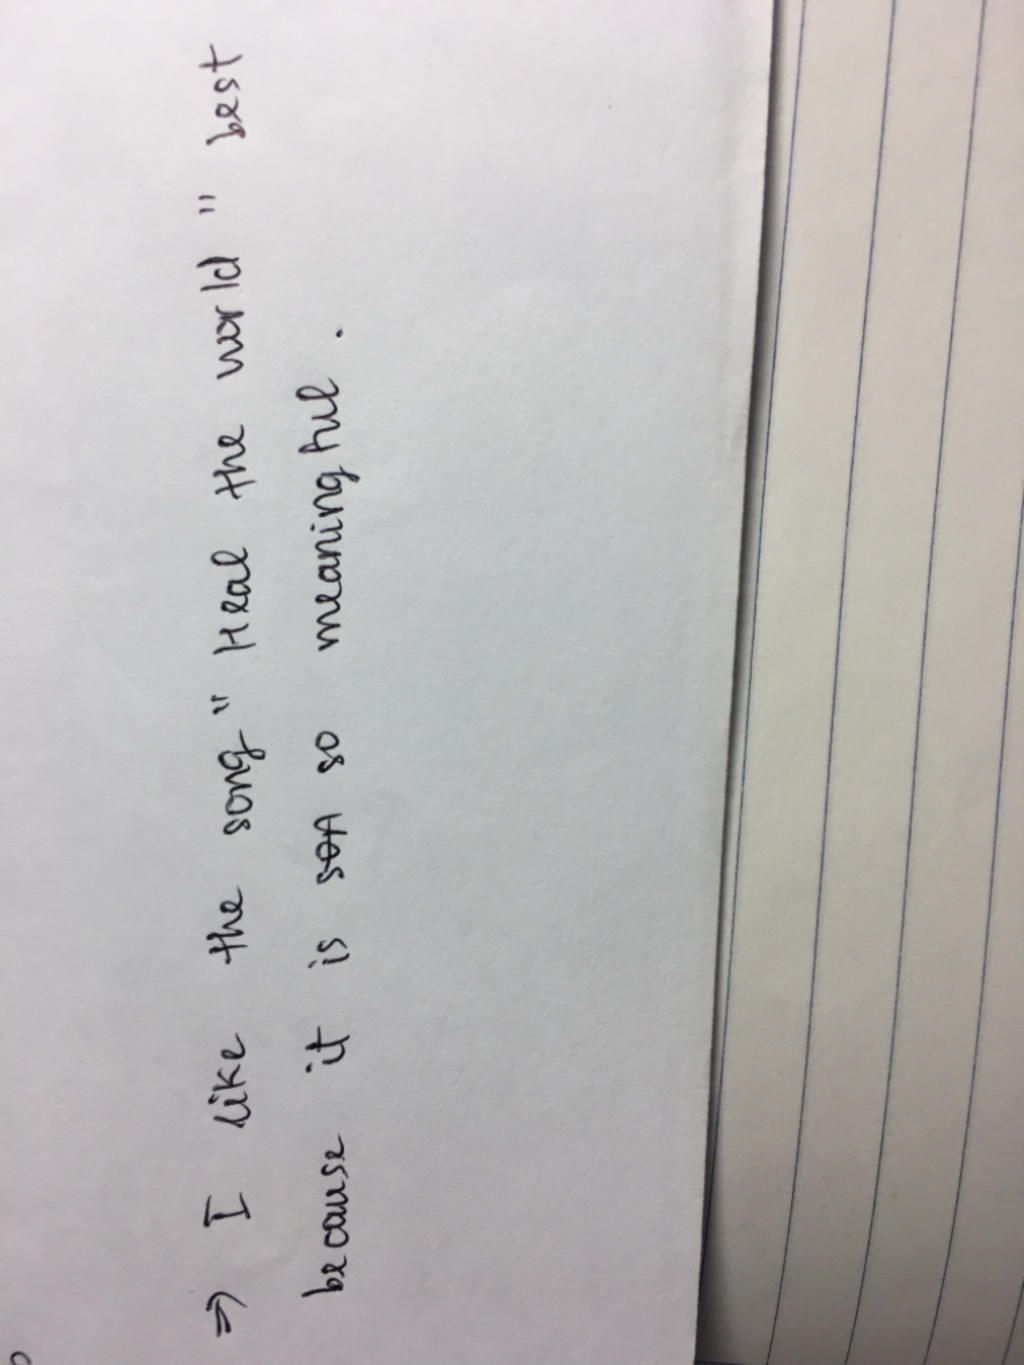 ⇒ I like the song " Heal the world " best
because it is so meaningful .